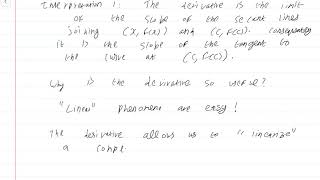 Interpretation 1: The derivative is the limit
of the slope of the secant lines
joining (x, f(x)) and (c, f(c)). Consequently
it is the slope of the tangent to
the curve at (c, f(c)).
Why is the derivative so useful?
"Linear" phenomena are easy!
The derivative allows us to "linearize"
a compl